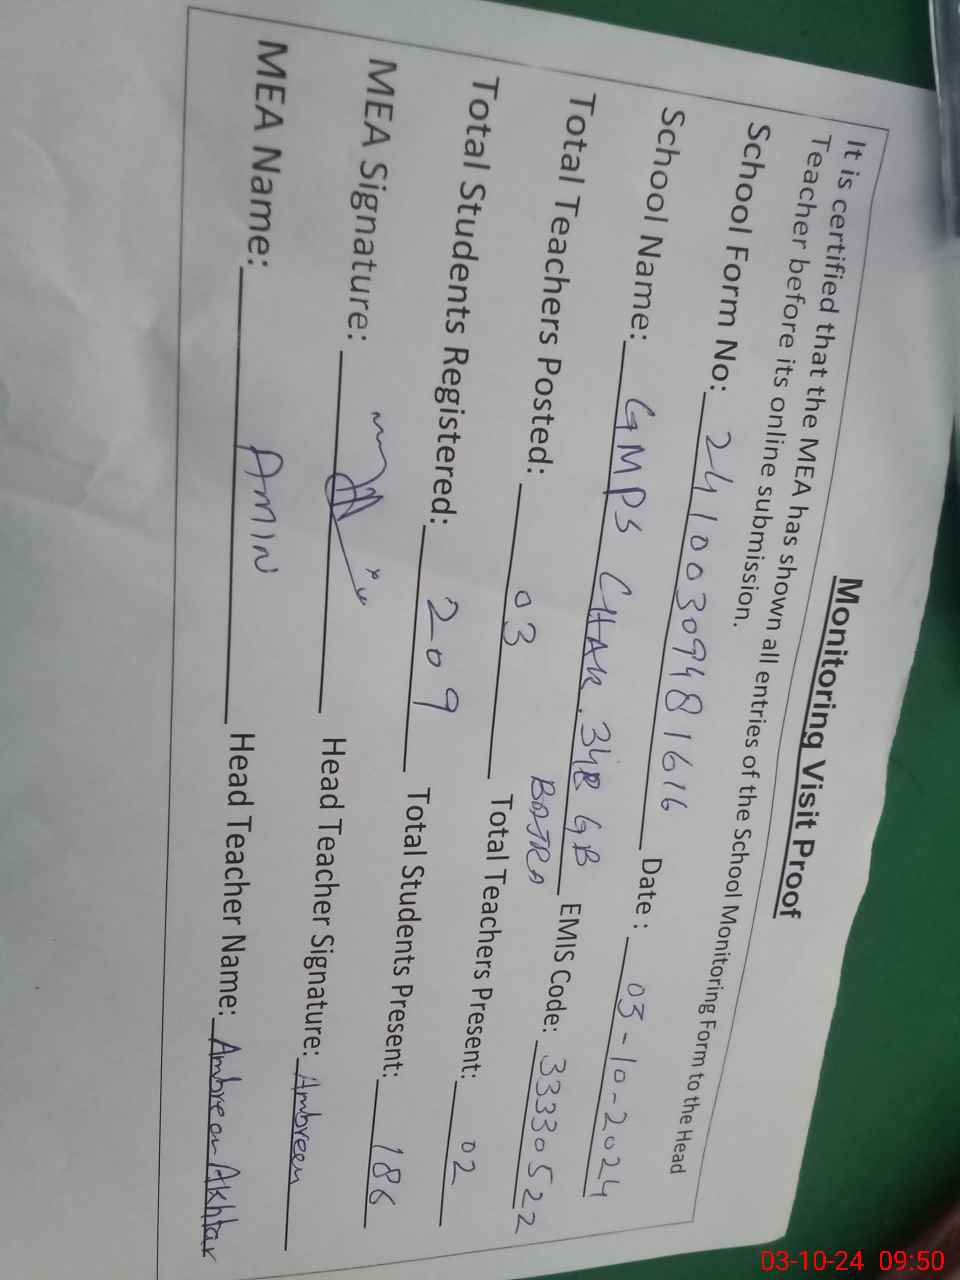 Monitoring Visit Proof
It is certified that the MEA has shown all entries of the School Monitoring Form to the Head
Teacher before its online submission.
School Form No: 24100309481616 Date : 03-10-2024
School Name: GMPS CHAK. 348 GB EMIS Code: 33330522
BOJRA
Total Teachers Posted: 03 Total Teachers Present: 02
Total Students Registered: 209 Total Students Present: 186
MEA Signature: Head Teacher Signature: Ambreen
MEA Name: AMIN Head Teacher Name: Ambreen Akhtar
03-10-24 09:50